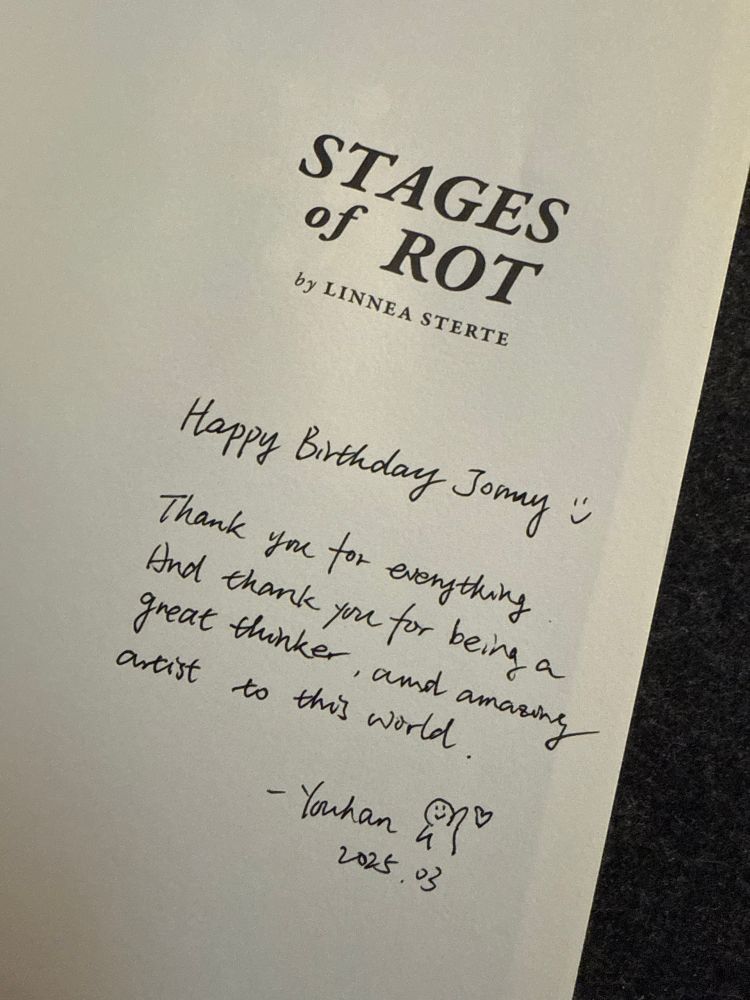 STAGES
of ROT
by LINNEA STERTE
Happy Birthday Jonny
Thank you for everything
And thank you for being a
great thinker, amd amazing
artist to this world.
- Youhan
2025.03